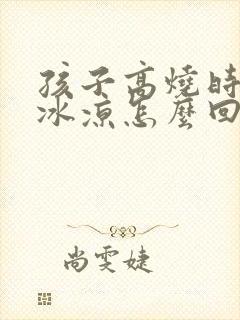 孩子高燒時
冰涼怎麼回
尚雯婕